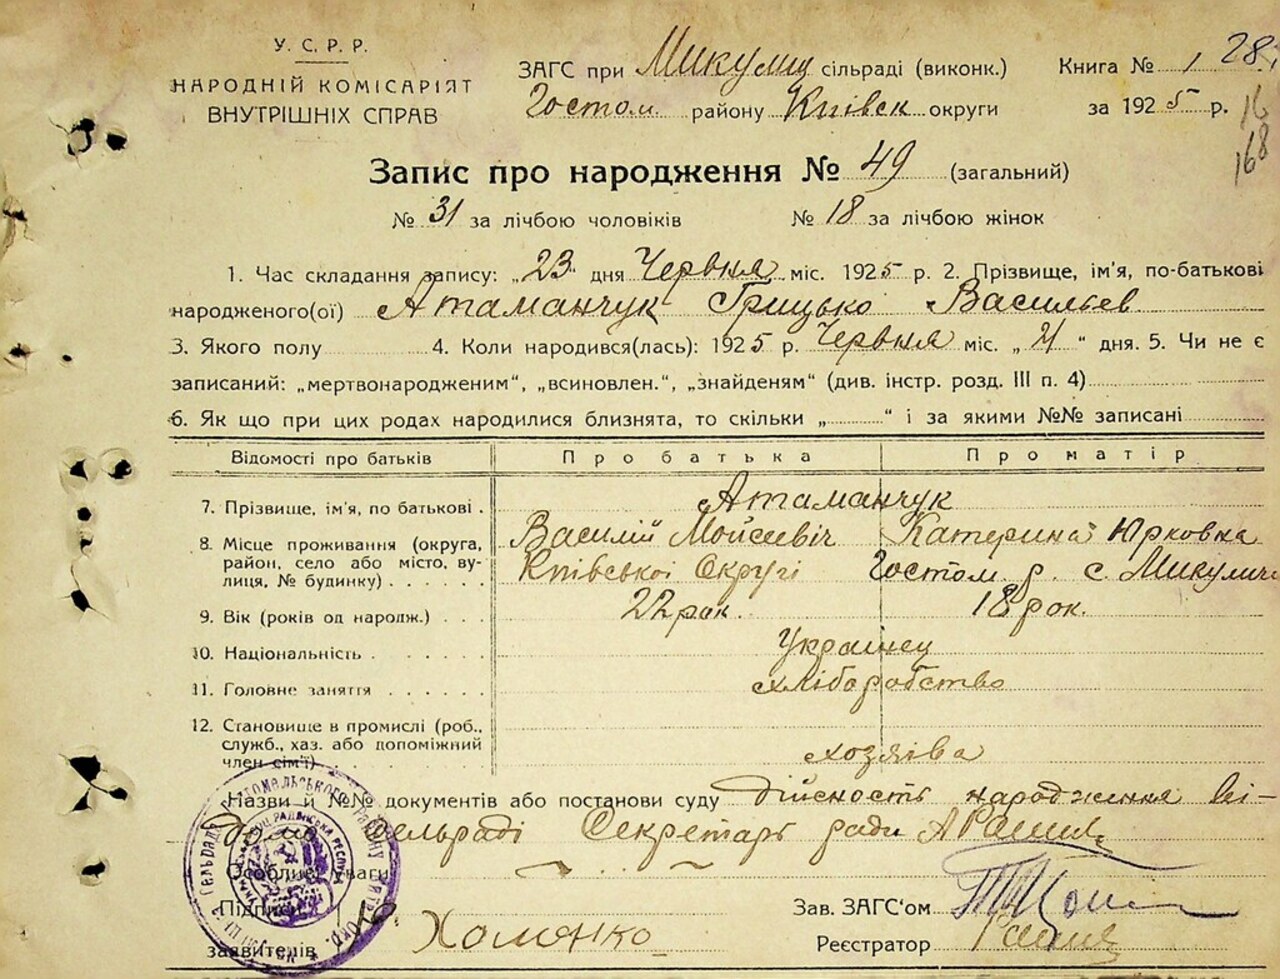 У. С. Р. Р.
НАРОДНІЙ КОМІСАРІЯТ
ВНУТРІШНІХ СПРАВ
ЗАГС при Микулиц сільраді (виконк.)
Гостом. району Київск округи
Книга № 1 28
за 1925 р.
16
168
Запис про народження № 49 (загальний)
№ 31 за лічбою чоловіків № 18 за лічбою жінок
1. Час складання запису: „23“ дня Червня міс. 1925 р. 2. Прізвище, ім'я, по-батькові
народженого(ої) Атаманчук Грицько Васильев
3. Якого полу 4. Коли народився(лась): 1925 р. Червня міс. „21“ дня. 5. Чи не є
записаний: „мертвонародженим“, „всиновлен.“, „знайденям“ (див. інстр. розд. III п. 4)
6. Як що при цих родах народилися близнята, то скільки „ “ і за якими №№ записані
Відомості про батьків Про батька Про матір
7. Прізвище, ім'я, по батькові . Атаманчук
Василій Мойсеевіч Катерина Юрковна
8. Місце проживання (округа,
район, село або місто, ву-
лиця, № будинку) . . . . . Київської Округі Гостом р. с. Микулич
9. Вік (років од народж.) . . . 22 рок. 18 рок.
10. Національність . . . . . . Українец
11. Головне заняття . . . . . . хліборобство
12. Становище в промислі (роб.,
служб., хаз. або допоміжний
член сім'ї) . . . . . . . хозяіва
Назви й №№ документів або постанови суду дійсность народження ві-
домо сельраді Секретарь ради
Особливі уваги
Підписи
заявителів Хоменко
Зав. ЗАГС'ом
Реєстратор